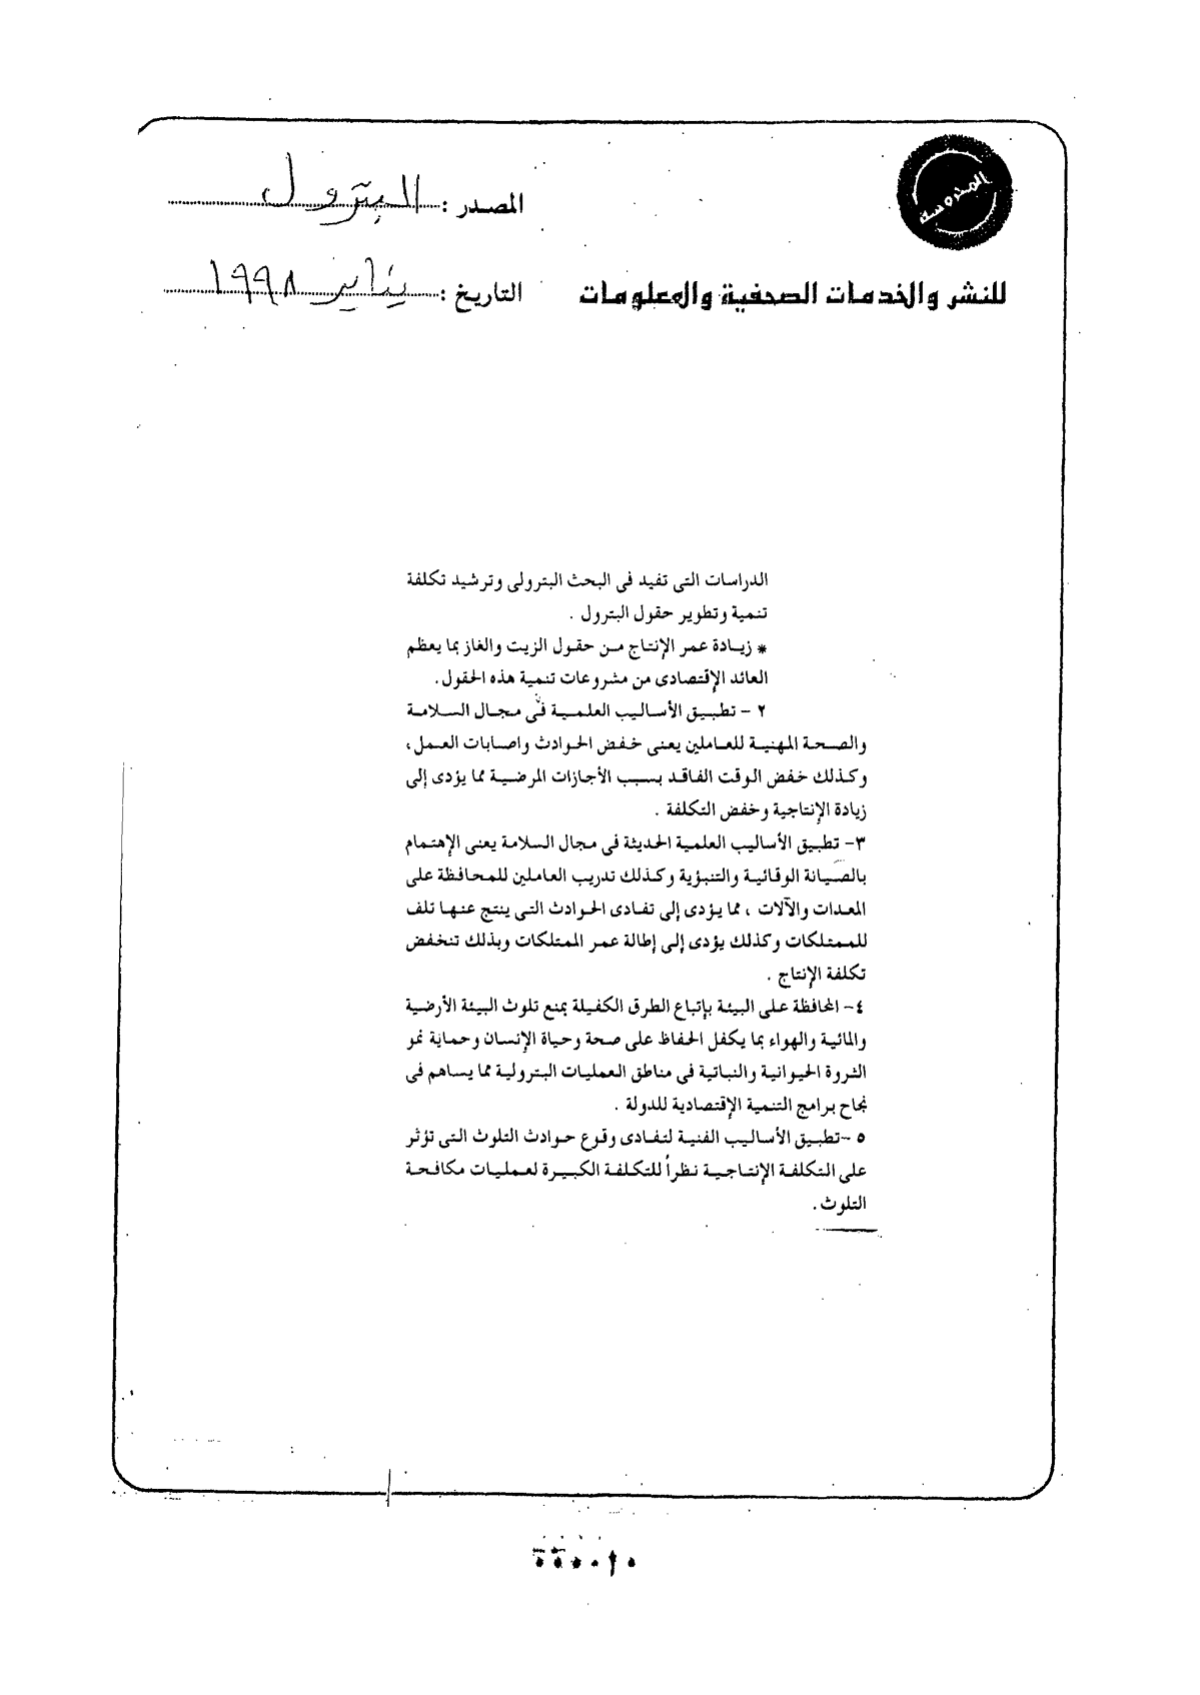 المحروسة
المصدر : البترول
للنشر والخدمات الصحفية والمعلومات
التاريخ : يناير ١٩٩٨
الدراسات التى تفيد فى البحث البترولى وترشيد تكلفة
تنمية وتطوير حقول البترول .
* زيادة عمر الإنتاج من حقول الزيت والغاز بما يعظم
العائد الإقتصادى من مشروعات تنمية هذه الحقول .
٢ - تطبيق الأساليب العلمية فى مجال السلامة
والصحة المهنية للعاملين يعنى خفض الحوادث واصابات العمل ،
وكذلك خفض الوقت الفاقد بسبب الأجازات المرضية مما يؤدى إلى
زيادة الإنتاجية وخفض التكلفة .
٣- تطبيق الأساليب العلمية الحديثة فى مجال السلامة يعنى الإهتمام
بالصيانة الوقائية والتنبؤية وكذلك تدريب العاملين للمحافظة على
المعدات والآلات ، مما يؤدى إلى تفادى الحوادث التى ينتج عنها تلف
للممتلكات وكذلك يؤدى إلى إطالة عمر الممتلكات وبذلك تنخفض
تكلفة الإنتاج .
٤- المحافظة على البيئة بإتباع الطرق الكفيلة بمنع تلوث البيئة الأرضية
والمائية والهواء بما يكفل الحفاظ على صحة وحياة الإنسان وحماية نمو
الثروة الحيوانية والنباتية فى مناطق العمليات البترولية مما يساهم فى
نجاح برامج التنمية الإقتصادية للدولة .
٥ -تطبيق الأساليب الفنية لتفادى وقوع حوادث التلوث التى تؤثر
على التكلفة الإنتاجية نظراً للتكلفة الكبيرة لعمليات مكافحة
التلوث .